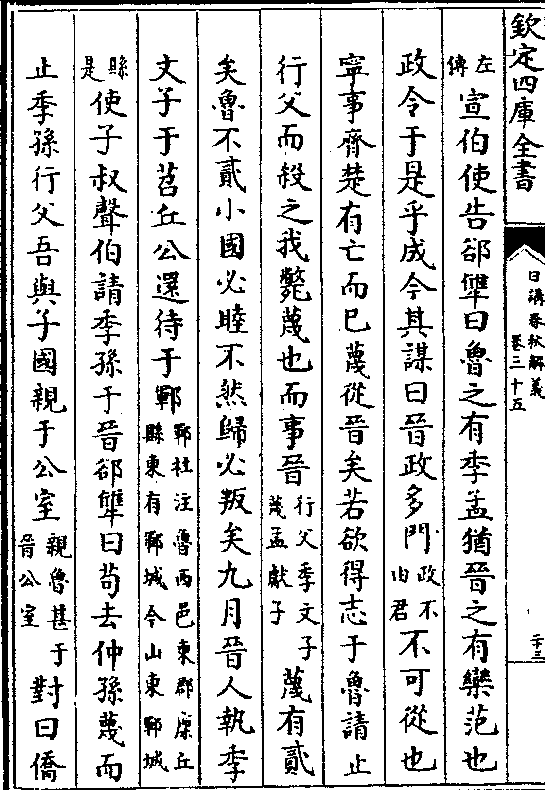 欽定四庫全書
日講春秋解義
卷三十五
二十三
左傳宣伯使告郤犨曰魯之有季孟猶晉之有欒范也
政令于是乎成今其謀曰晉政多門政不由君不可從也
寧事齊楚有亡而已蔑從晉矣若欲得志于魯請止
行父而殺之我斃蔑也而事晉行父季文子蔑孟獻子蔑有貳
矣魯不貳小國必睦不然歸必叛矣九月晉人執季
文子于苕丘公還待于鄆鄆杜注魯西邑東郡廩丘縣東有鄆城今山東鄆城
縣是使子叔聲伯請季孫于晉郤犨曰苟去仲孫蔑而
止季孫行父吾與子國親于公室親魯甚于晉公室對曰僑